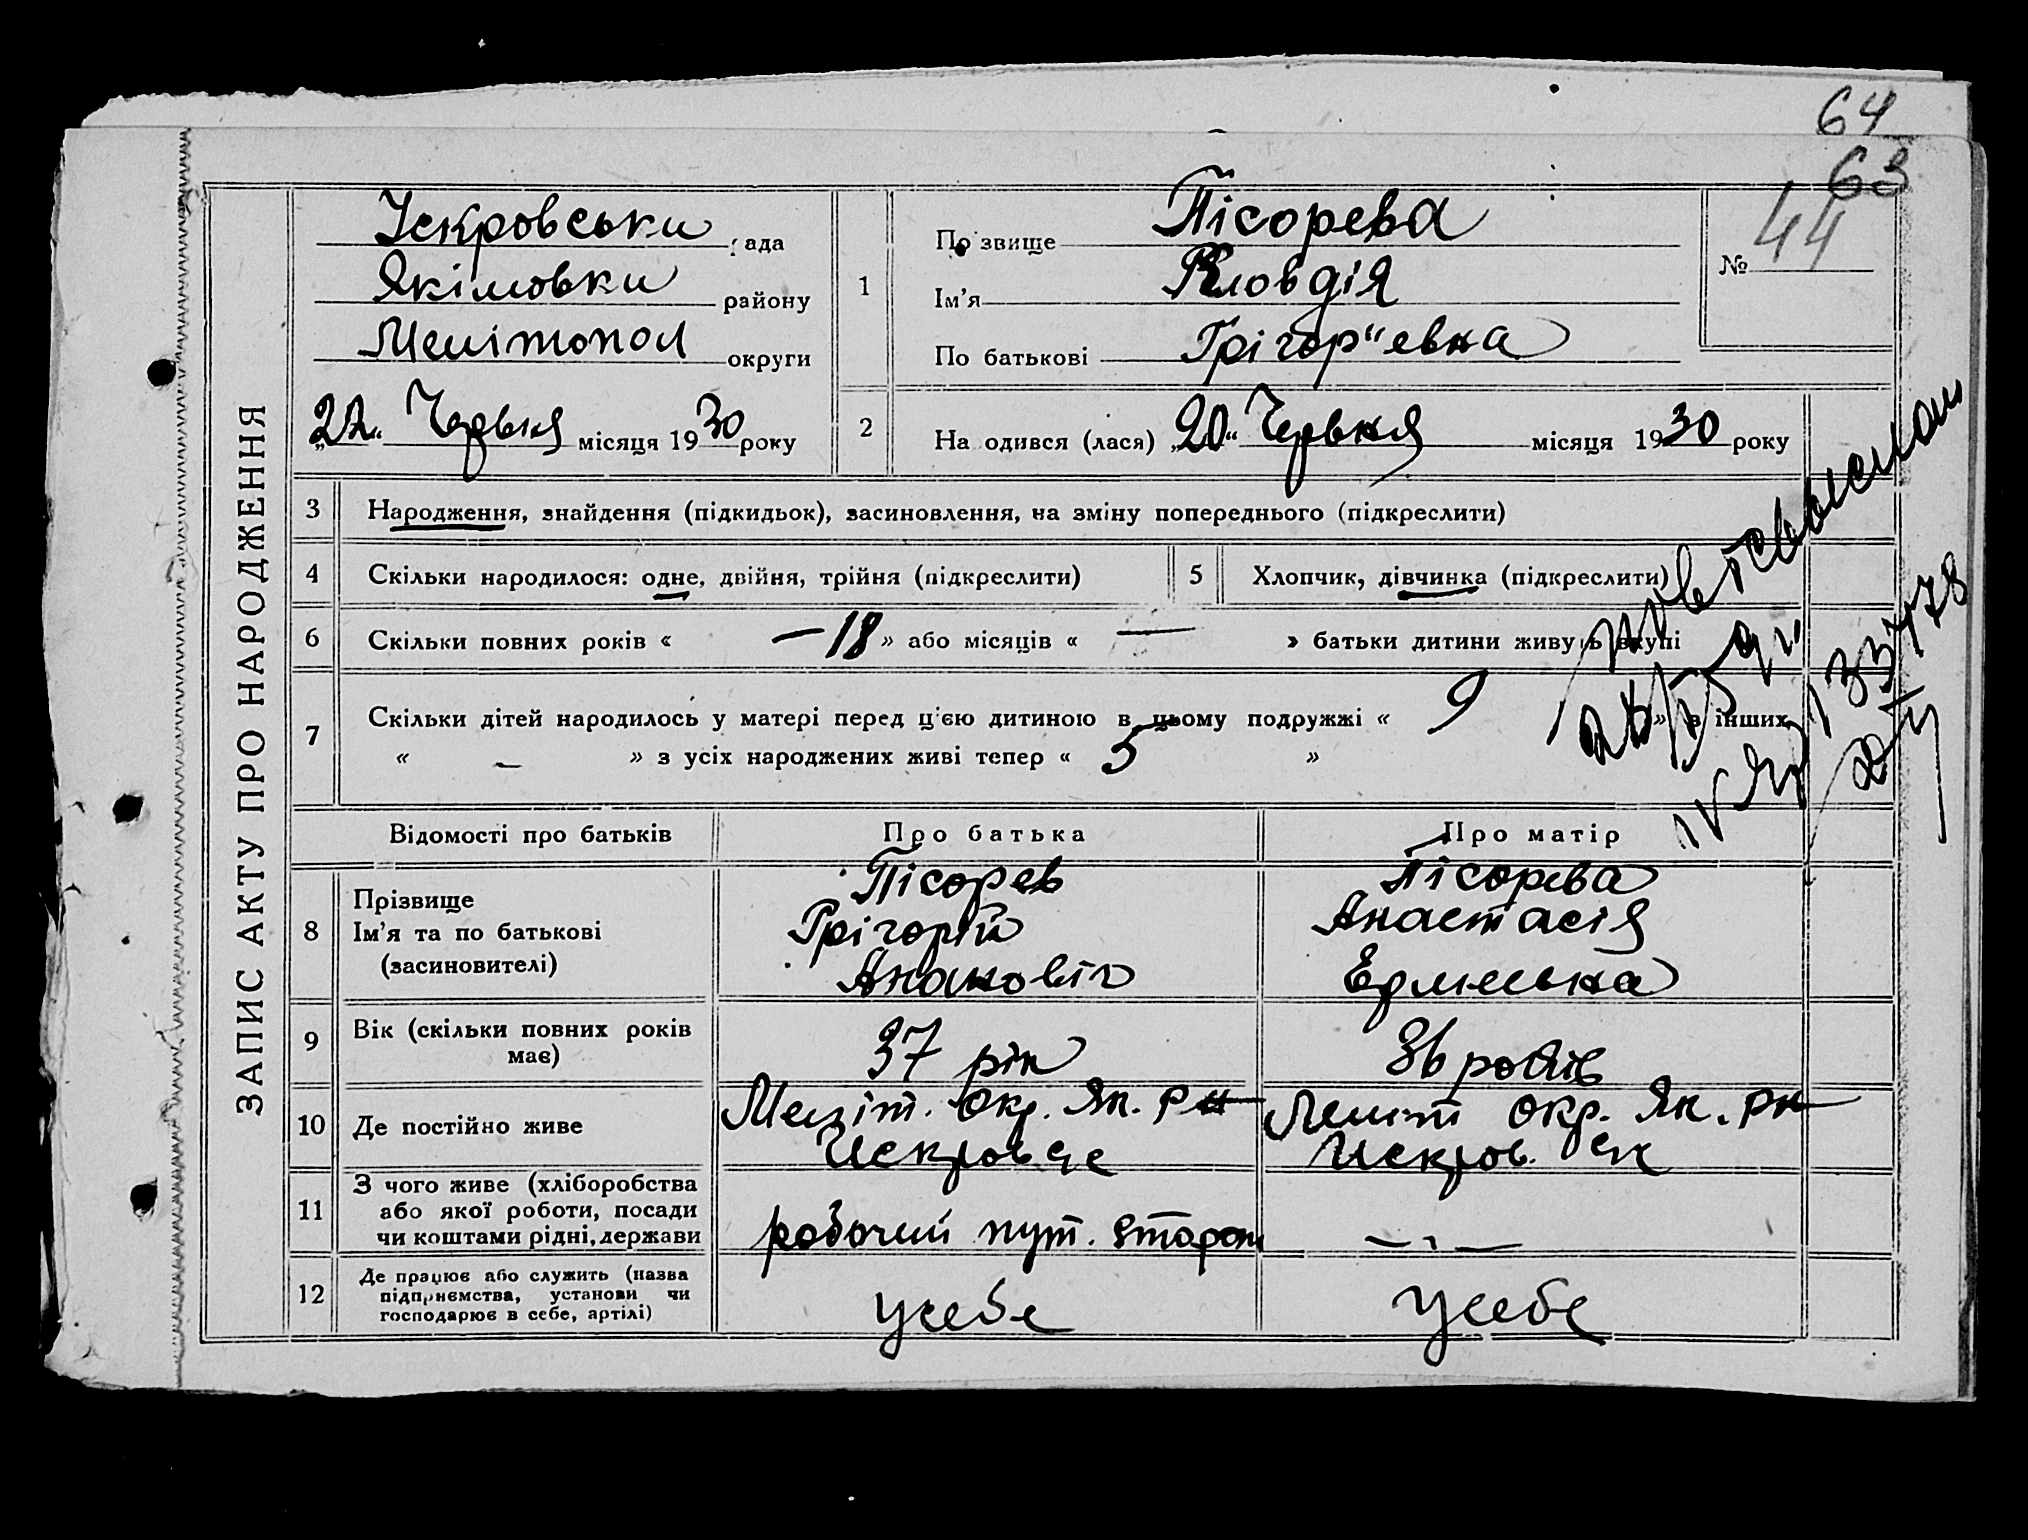 64
63
ЗАПИС АКТУ ПРО НАРОДЖЕННЯ
Іскровськи рада
Якімовки району
Мелітопол округи
„22“ Червня місяця 1930 року
1
Прізвище Пісорева
Ім’я Кловдія
По батькові Грігор"евна
№ 44
2
Народився (лася) „20“ Червня місяця 1930 року
3 Народження, знайдення (підкидьок), засиновлення, на зміну попереднього (підкреслити)
4 Скільки народилося: одне, двійня, трійня (підкреслити)
5 Хлопчик, дівчинка (підкреслити)
6 Скільки повних років « —18 » або місяців « — » батьки дитини живуть вкупі
7 Скільки дітей народилось у матері перед ц’єю дитиною в цьому подружжі « 9 » в інших
« — » з усіх народжених живі тепер « 5 »
133778
Відомості про батьків Про батька Про матір
8 Прізвище
Ім’я та по батькові
(засиновителі)
Пісорев
Грігорій
Пісорева
Анастасія
9 Вік (скільки повних років
має)
37 рік
36 років
10 Де постійно живе
Меліт. Окр. Як. рн
Искров
Меліт Окр. Як. рн
Искров.
11 З чого живе (хліборобства
або якої роботи, посади
чи коштами рідні, держави
робочий пут. Сторож
— „ —
12 Де працює або служить (назва
підприємства, установи чи
господарює в себе, артілі)
усебе
усебе